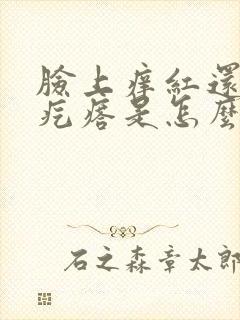 臉上痒紅還
疙瘩是怎麼
石之森章太郎